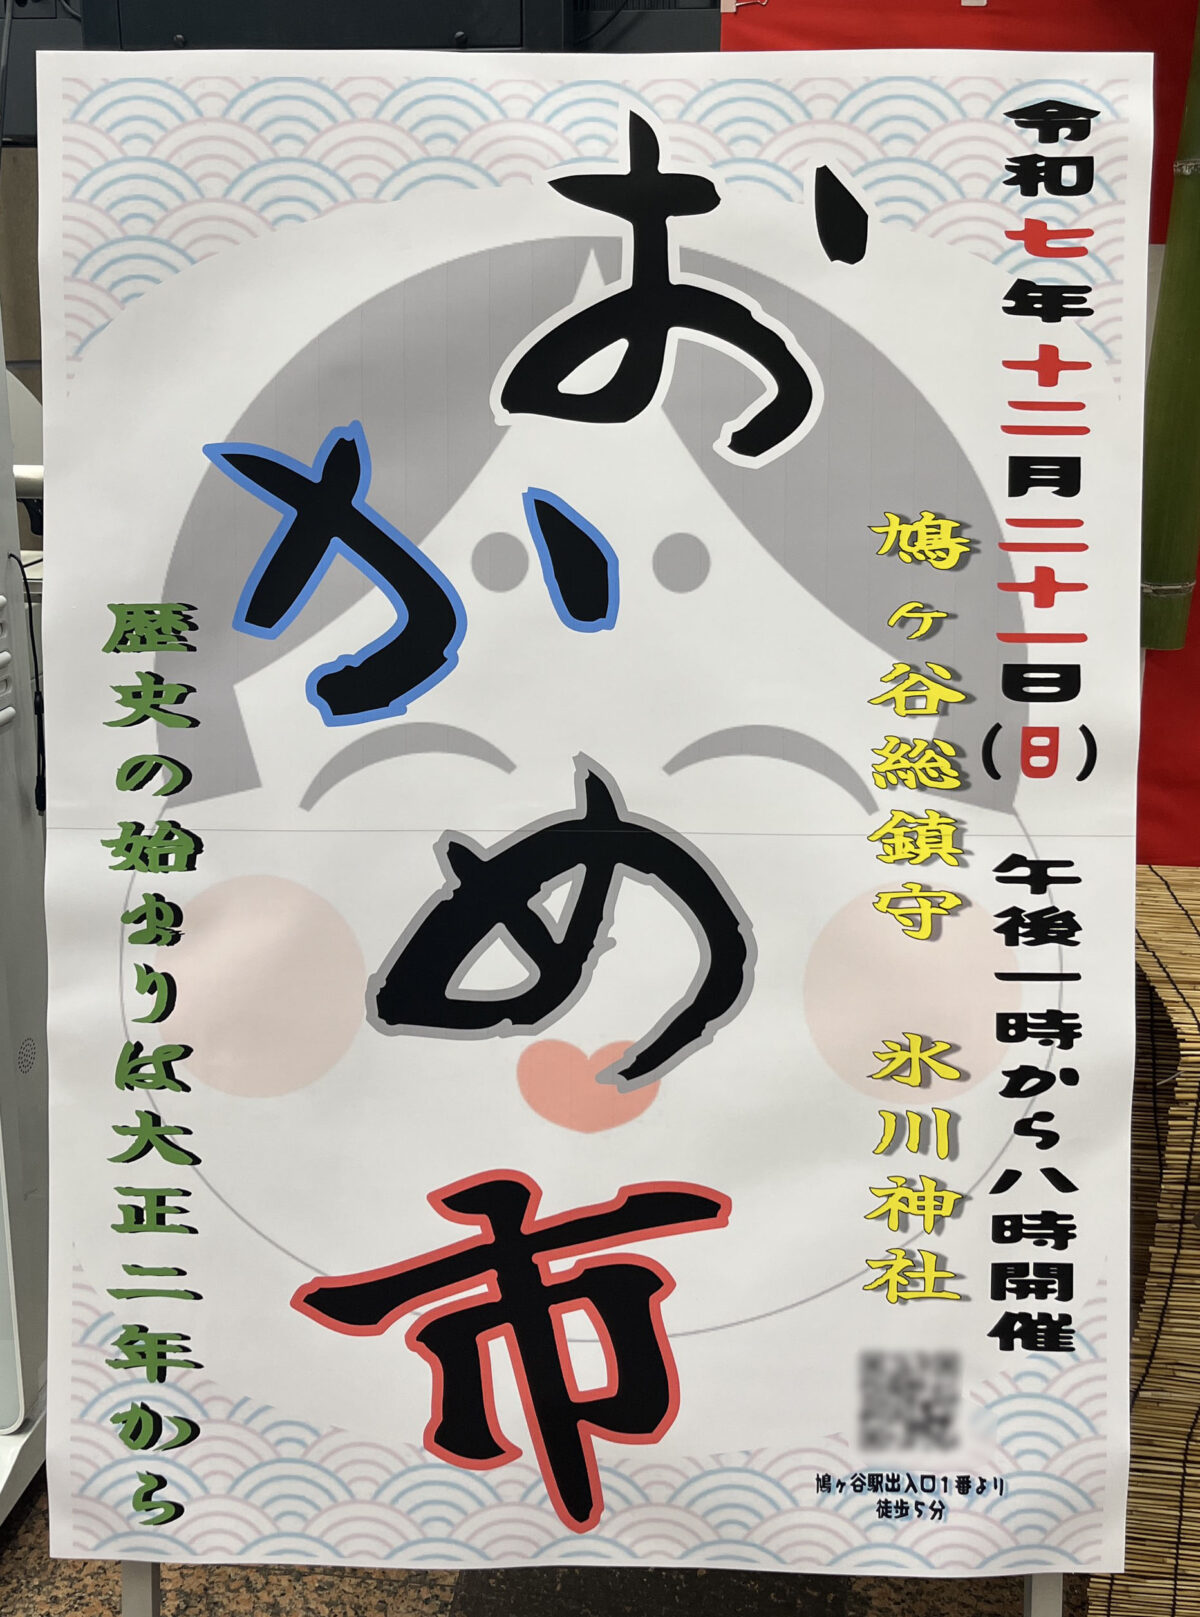 令和七年十二月二十一日(日) 午後一時から八時開催
鳩ヶ谷総鎮守 氷川神社
おかめ市
歴史の始まりは大正二年から
鳩ヶ谷駅出入口1番より
徒歩5分